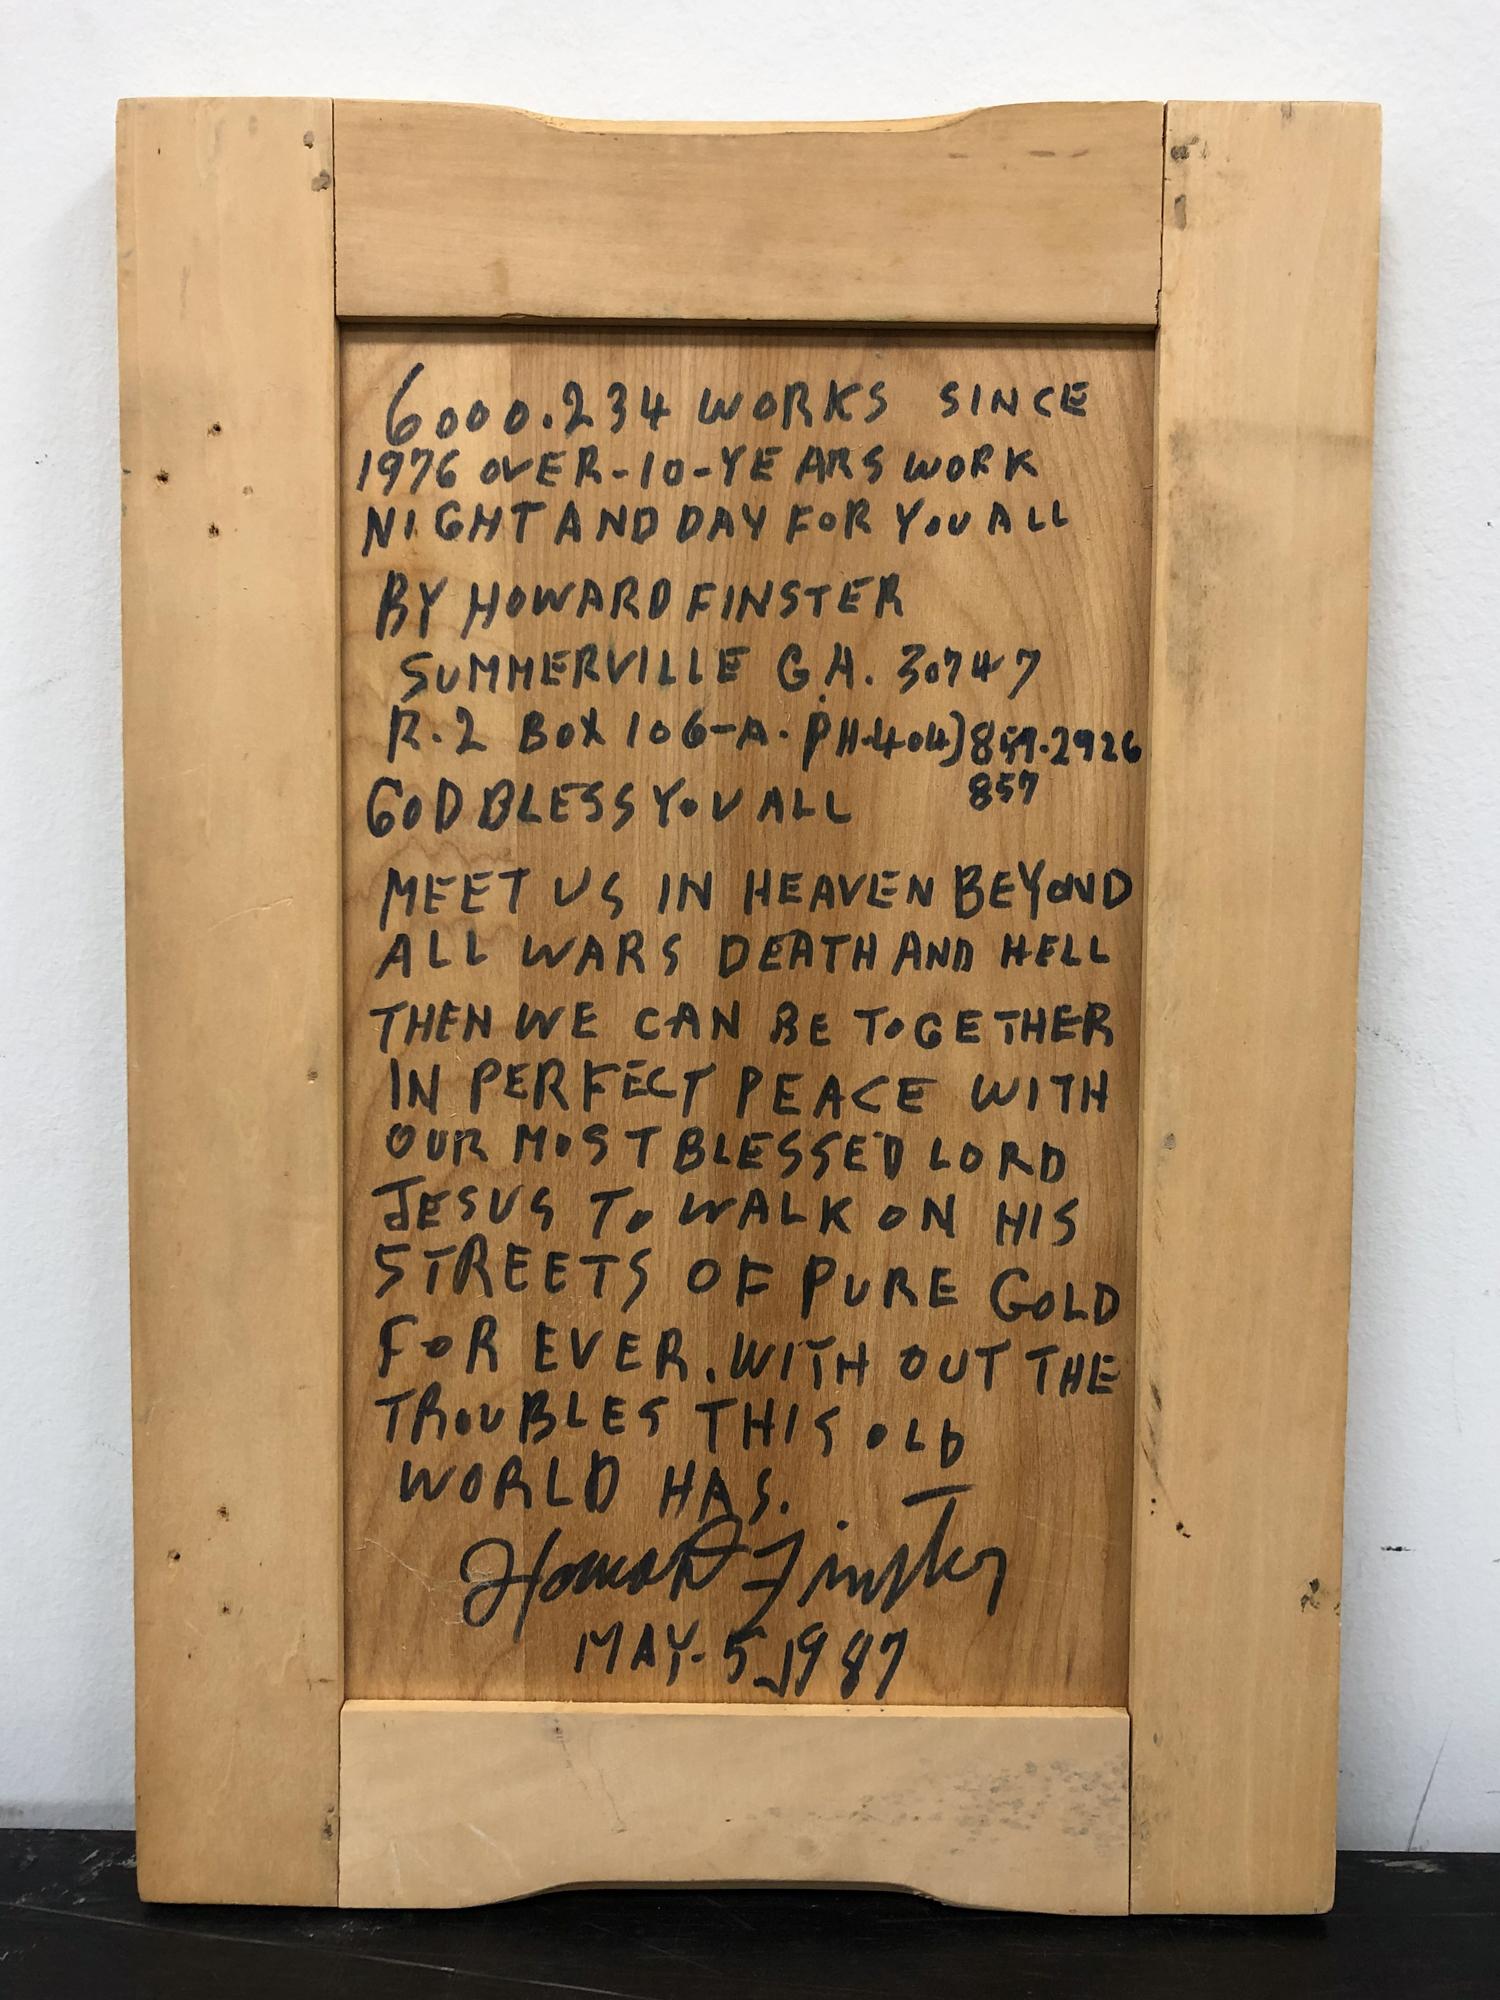 6000.234 WORKS SINCE
1976 OVER-10-YEARS WORK
NIGHT AND DAY FOR YOU ALL
BY HOWARD FINSTER
SUMMERVILLE GA. 30747
R.2 BOX 106-A. PH.404) 857.2926
857
GOD BLESS YOU ALL
MEET US IN HEAVEN BEYOND
ALL WARS DEATH AND HELL
THEN WE CAN BE TOGETHER
IN PERFECT PEACE WITH
OUR MOST BLESSED LORD
JESUS TO WALK ON HIS
STREETS OF PURE GOLD
FOR EVER. WITH OUT THE
TROUBLES THIS OLD
WORLD HAS.
Howard Finster
MAY-5-1987